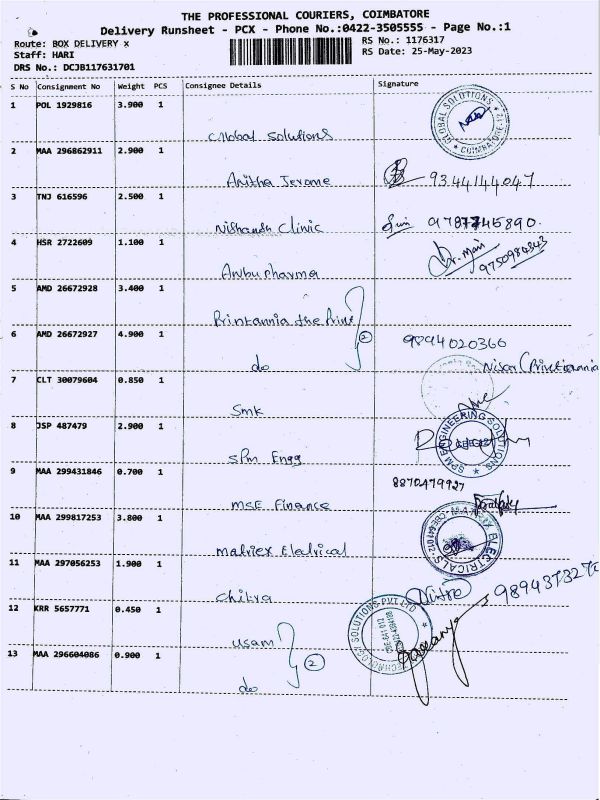 THE PROFESSIONAL COURIERS, COIMBATORE
Delivery Runsheet - PCX - Phone No.:0422-3505555 - Page No.:1
Route: BOX DELIVERY x
RS No.: 1176317
Staff: HARI
RS Date: 25-May-2023
DRS No.: DCJB117631701
S No Consignment No Weight PCS Consignee Details Signature
1 POL 1929816 3.900 1
Global Solutions
GLOBAL SOLUTIONS COIMBATORE-12
2 MAA 296862911 2.900 1
Anitha Jerome 9344144047
3 TNJ 616596 2.500 1
Nishandh Clinic 9787745890.
4 HSR 2722609 1.100 1
Anbu pharma Dr. Mani 9750984843
5 AMD 26672928 3.400 1
Printannia the Print
2
6 AMD 26672927 4.900 1 9894020366
do
7 CLT 30079604 0.850 1
Smk
8 JSP 487479 2.900 1
SPM Engg
SPM ENGINEERING SOLUTIONS
9 MAA 299431846 0.700 1 8870479927
MSE Finance
10 MAA 299817253 3.800 1
Matriex Electrical
ELECTRICALS
11 MAA 297056253 1.900 1
Chitra
12 KRR 5657771 0.450 1
usam
TECHNOLOGY SOLUTIONS PVT LTD
2
13 MAA 296604086 0.900 1
do